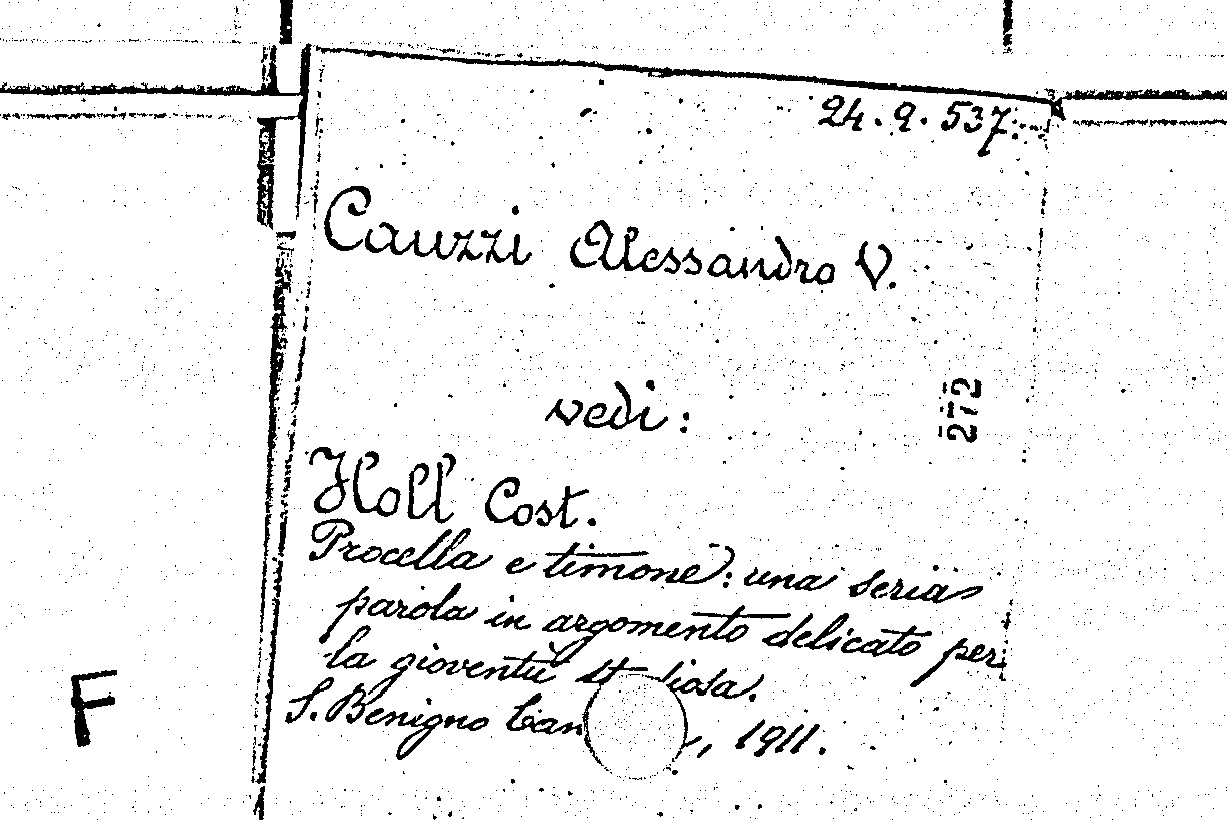 24.9.537.
Cauzzi Alessandro V.
vedi:
272
Holl Cost.
Procella e timone: una seria
parola in argomento delicato per
la gioventù
S. Benigno , 1911.
F